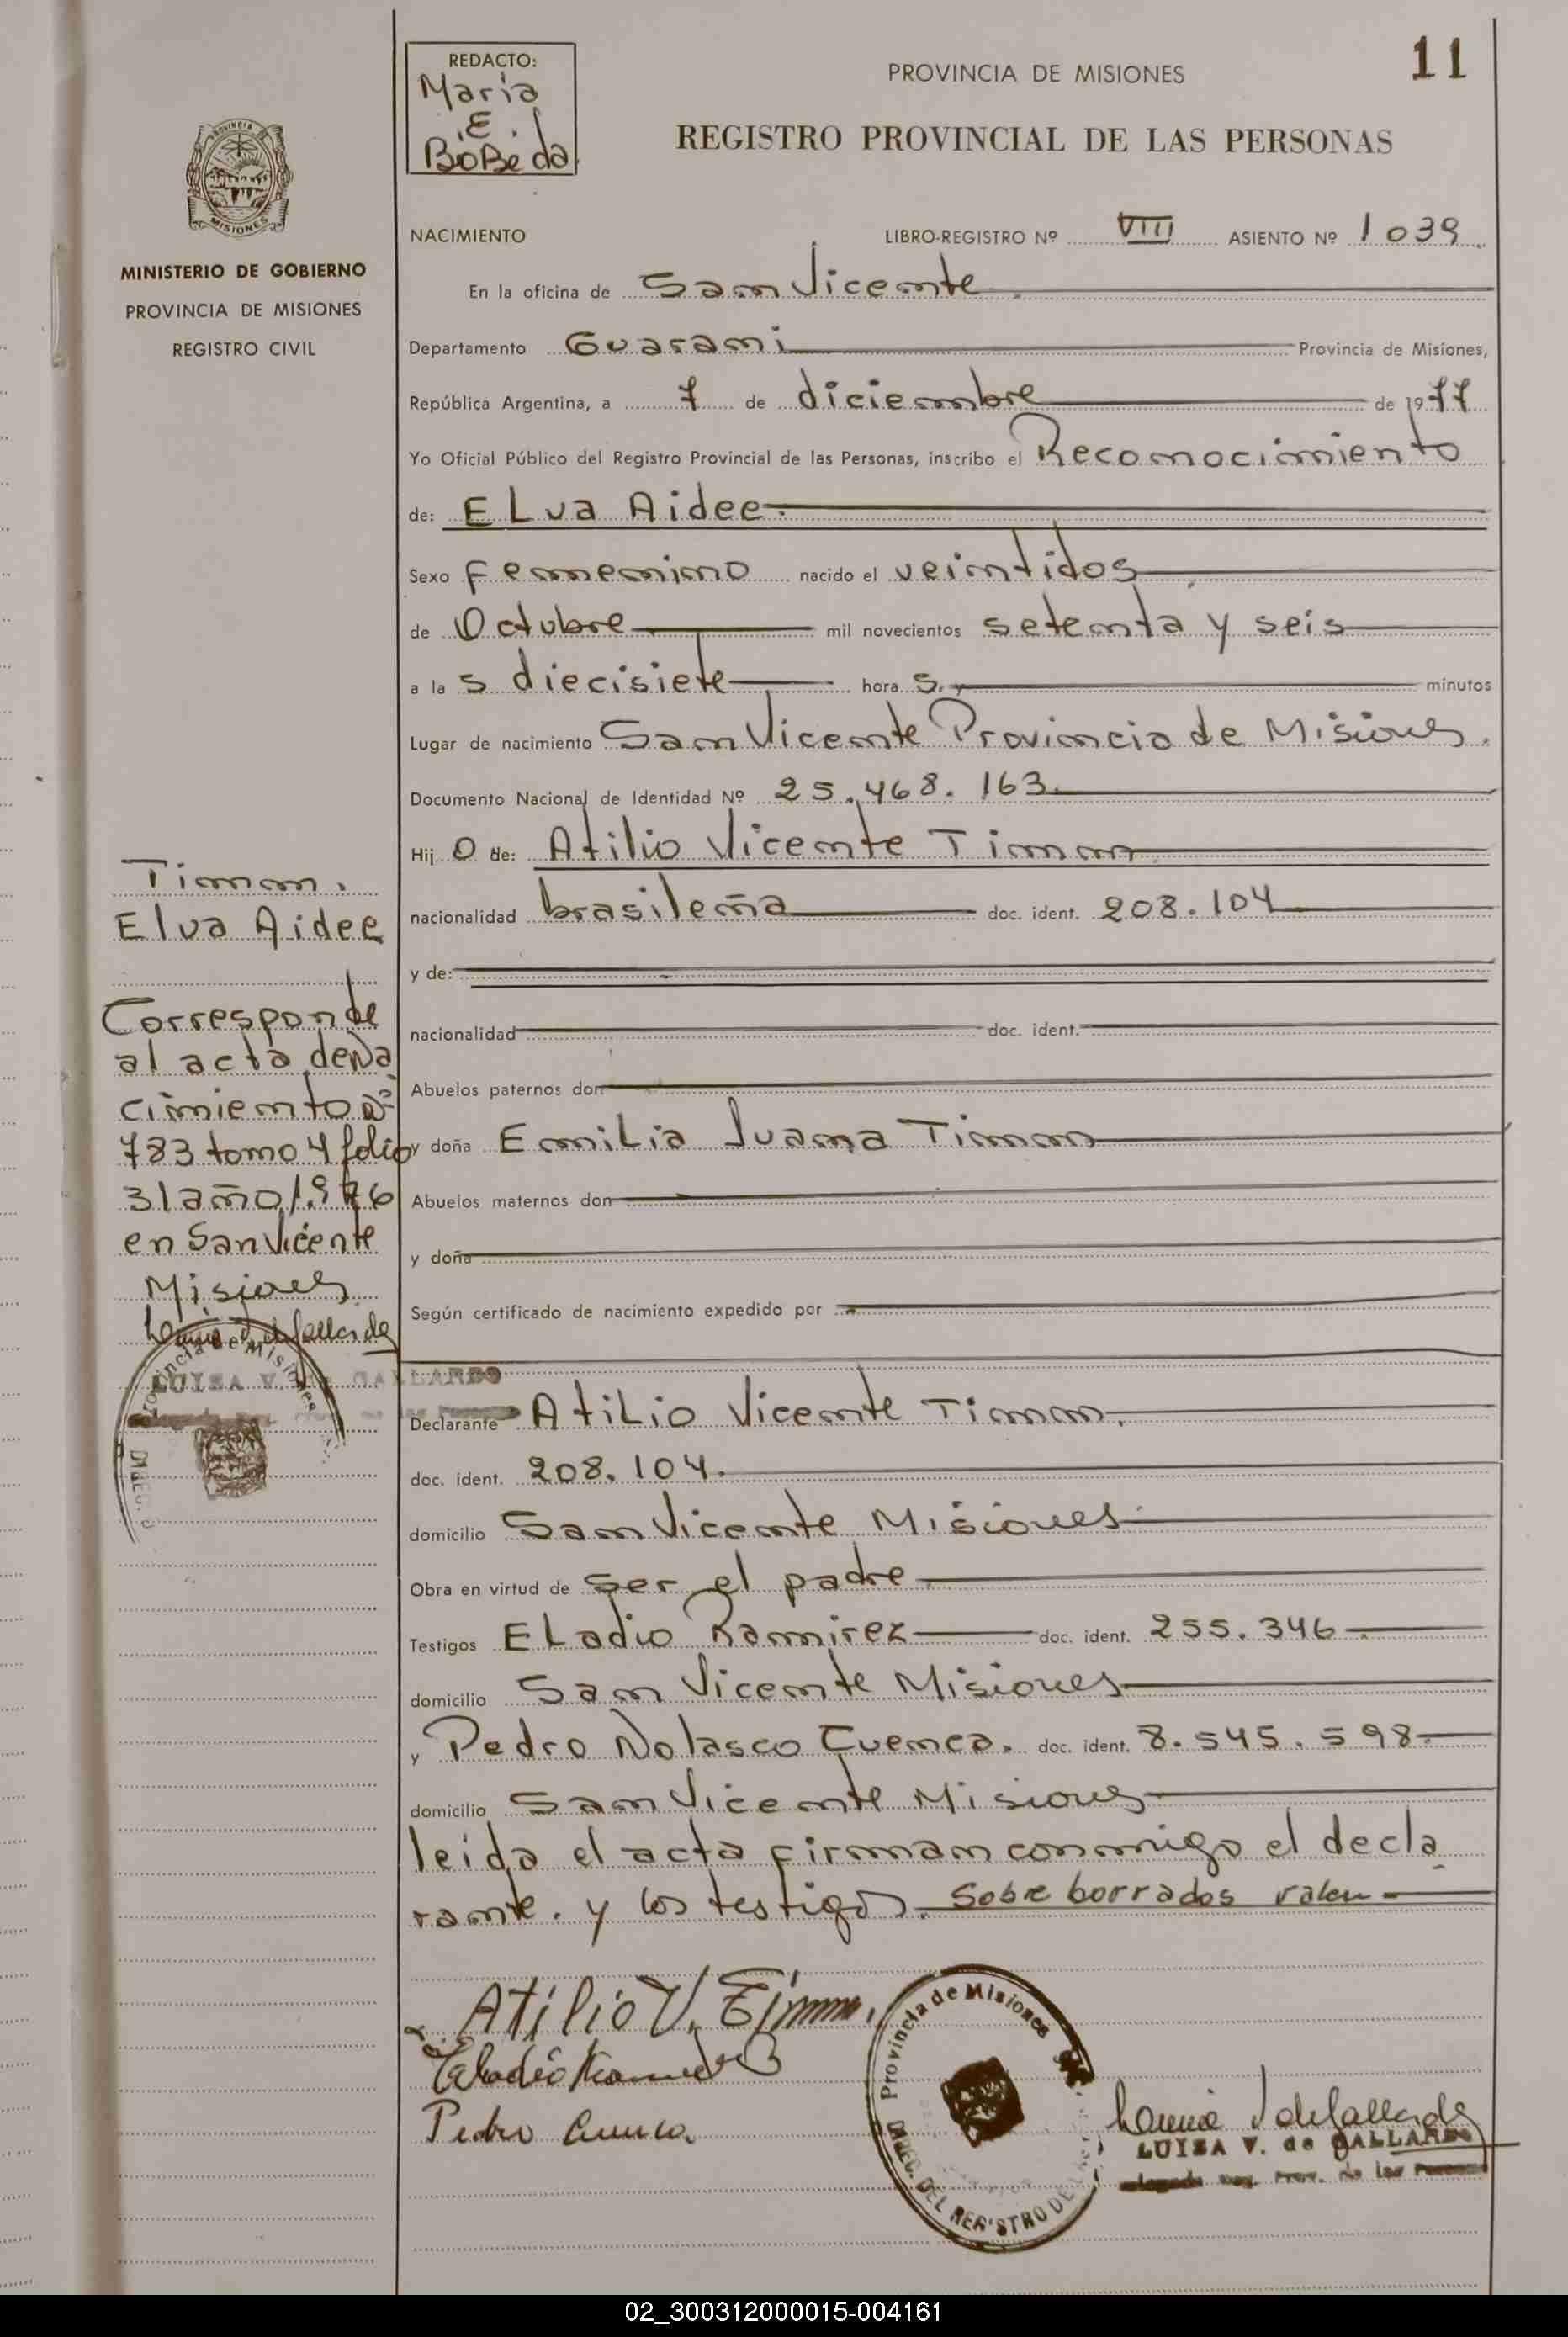 11
REDACTO:
Maria
E.
BoBeda
PROVINCIA DE MISIONES
REGISTRO PROVINCIAL DE LAS PERSONAS
PROVINCIA DE
MISIONES
MINISTERIO DE GOBIERNO
PROVINCIA DE MISIONES
REGISTRO CIVIL
NACIMIENTO LIBRO-REGISTRO Nº VIII ASIENTO Nº 1039
En la oficina de San Vicente
Departamento Guarani Provincia de Misiones,
República Argentina, a 7 de diciembre de 1977
Yo Oficial Público del Registro Provincial de las Personas, inscribo el Reconocimiento
de: ELva Aidee
Sexo femenino nacido el veintidos
de Octubre mil novecientos setenta y seis
a la s diecisiete hora s. y minutos
Lugar de nacimiento San Vicente Provincia de Misiones.
Documento Nacional de Identidad Nº 25.468.163
Hij a de: Atilio Vicente Timm
nacionalidad brasileña doc. ident. 208.104
y de:
nacionalidad doc. ident.
Abuelos paternos don
y doña EmiLia Juana Timm
Abuelos maternos don
y doña
Según certificado de nacimiento expedido por
Declarante AtiLio Vicente Timm.
doc. ident. 208.104.
domicilio San Vicente Misiones
Obra en virtud de ser el padre
Testigos ELadio Ramirez doc. ident. 255.346
domicilio San Vicente Misiones
y Pedro Nolasco Cuenca. doc. ident. 8.545.598
domicilio San Vicente Misiones
leida el acta firman conmigo el decla
rante. y los testigos. Sobre borrados valen
Timm.
Elva Aidee
Corresponde
al acta de Na
cimiento Nº
783 tomo 4 folio
31 año 1.976
en San Vicente
Misiones
LUISA V. de GALLARDO
Provincia de Misiones
Atilio V. Timm.
Eladio Ramirez
Pedro Cuenca.
Provincia de Misiones
DIREC. DEL REGISTRO DE
LUISA V. de GALLARDO
Delegada Reg. Prov. de las Personas
02_300312000015-004161